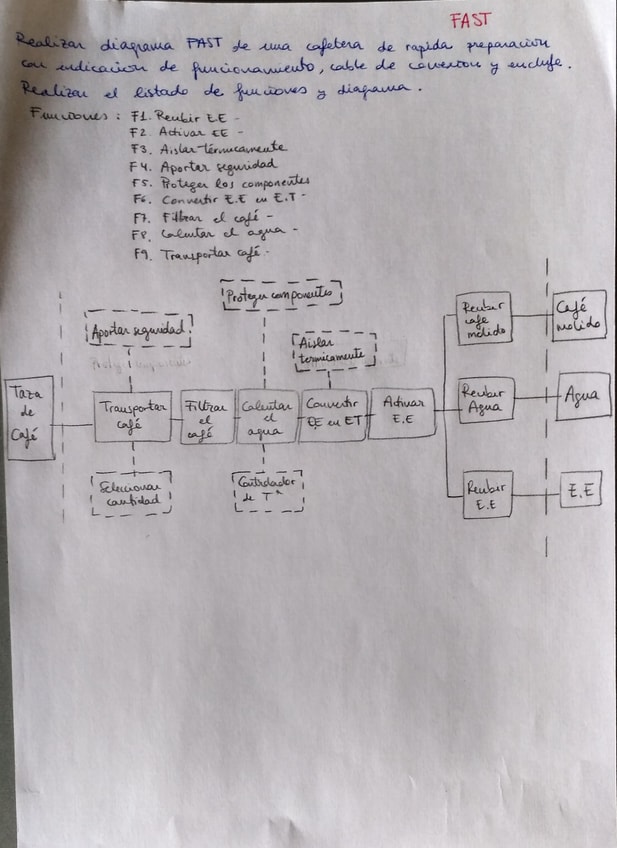 FAST
Realizar diagrama FAST de una cafetera de rapida preparación
con indicación de funcionamiento, cable de conexion y enchufe.
Realizar el listado de funciones y diagrama.
Funciones : F1. Recibir E.E -
F2. Activar EE -
F3. Aislar térmicamente
F4. Aportar seguridad
F5. Proteger los componentes
F6. Convertir E.E en E.T -
F7. Filtrar el café -
F8. Calentar el agua -
F9. Transportar café -
Proteger componentes
Aportar seguridad
Aislar
termicamente
Recibir
café
molido
Café
molido
Taza
de
Café
Transportar
café
Filtrar
el
café
Calentar
el
agua
Convertir
EE en ET
Activar
E.E
Recibir
Agua
Agua
Selecionar
cantidad
Controlador
de Tª
Recibir
E.E
E.E